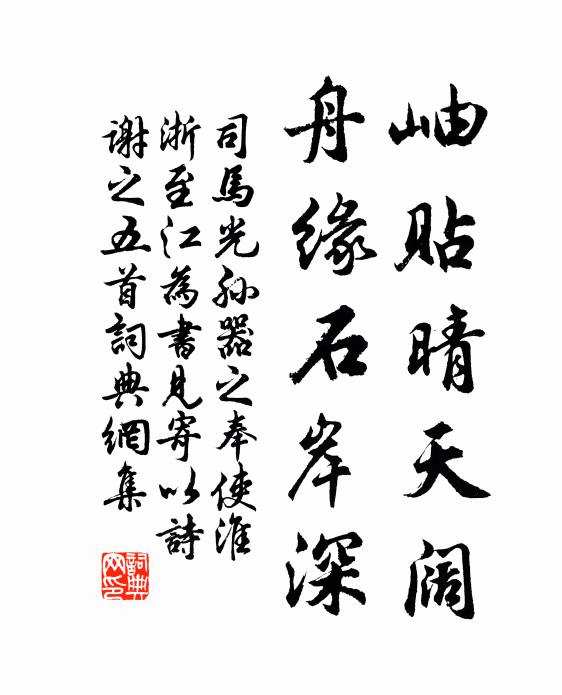 岫貼晴天闊
舟緣石岸深
司馬光孙器之奉使淮
浙至江為書見寄以詩
謝之五首詞典網集
詞典
网印